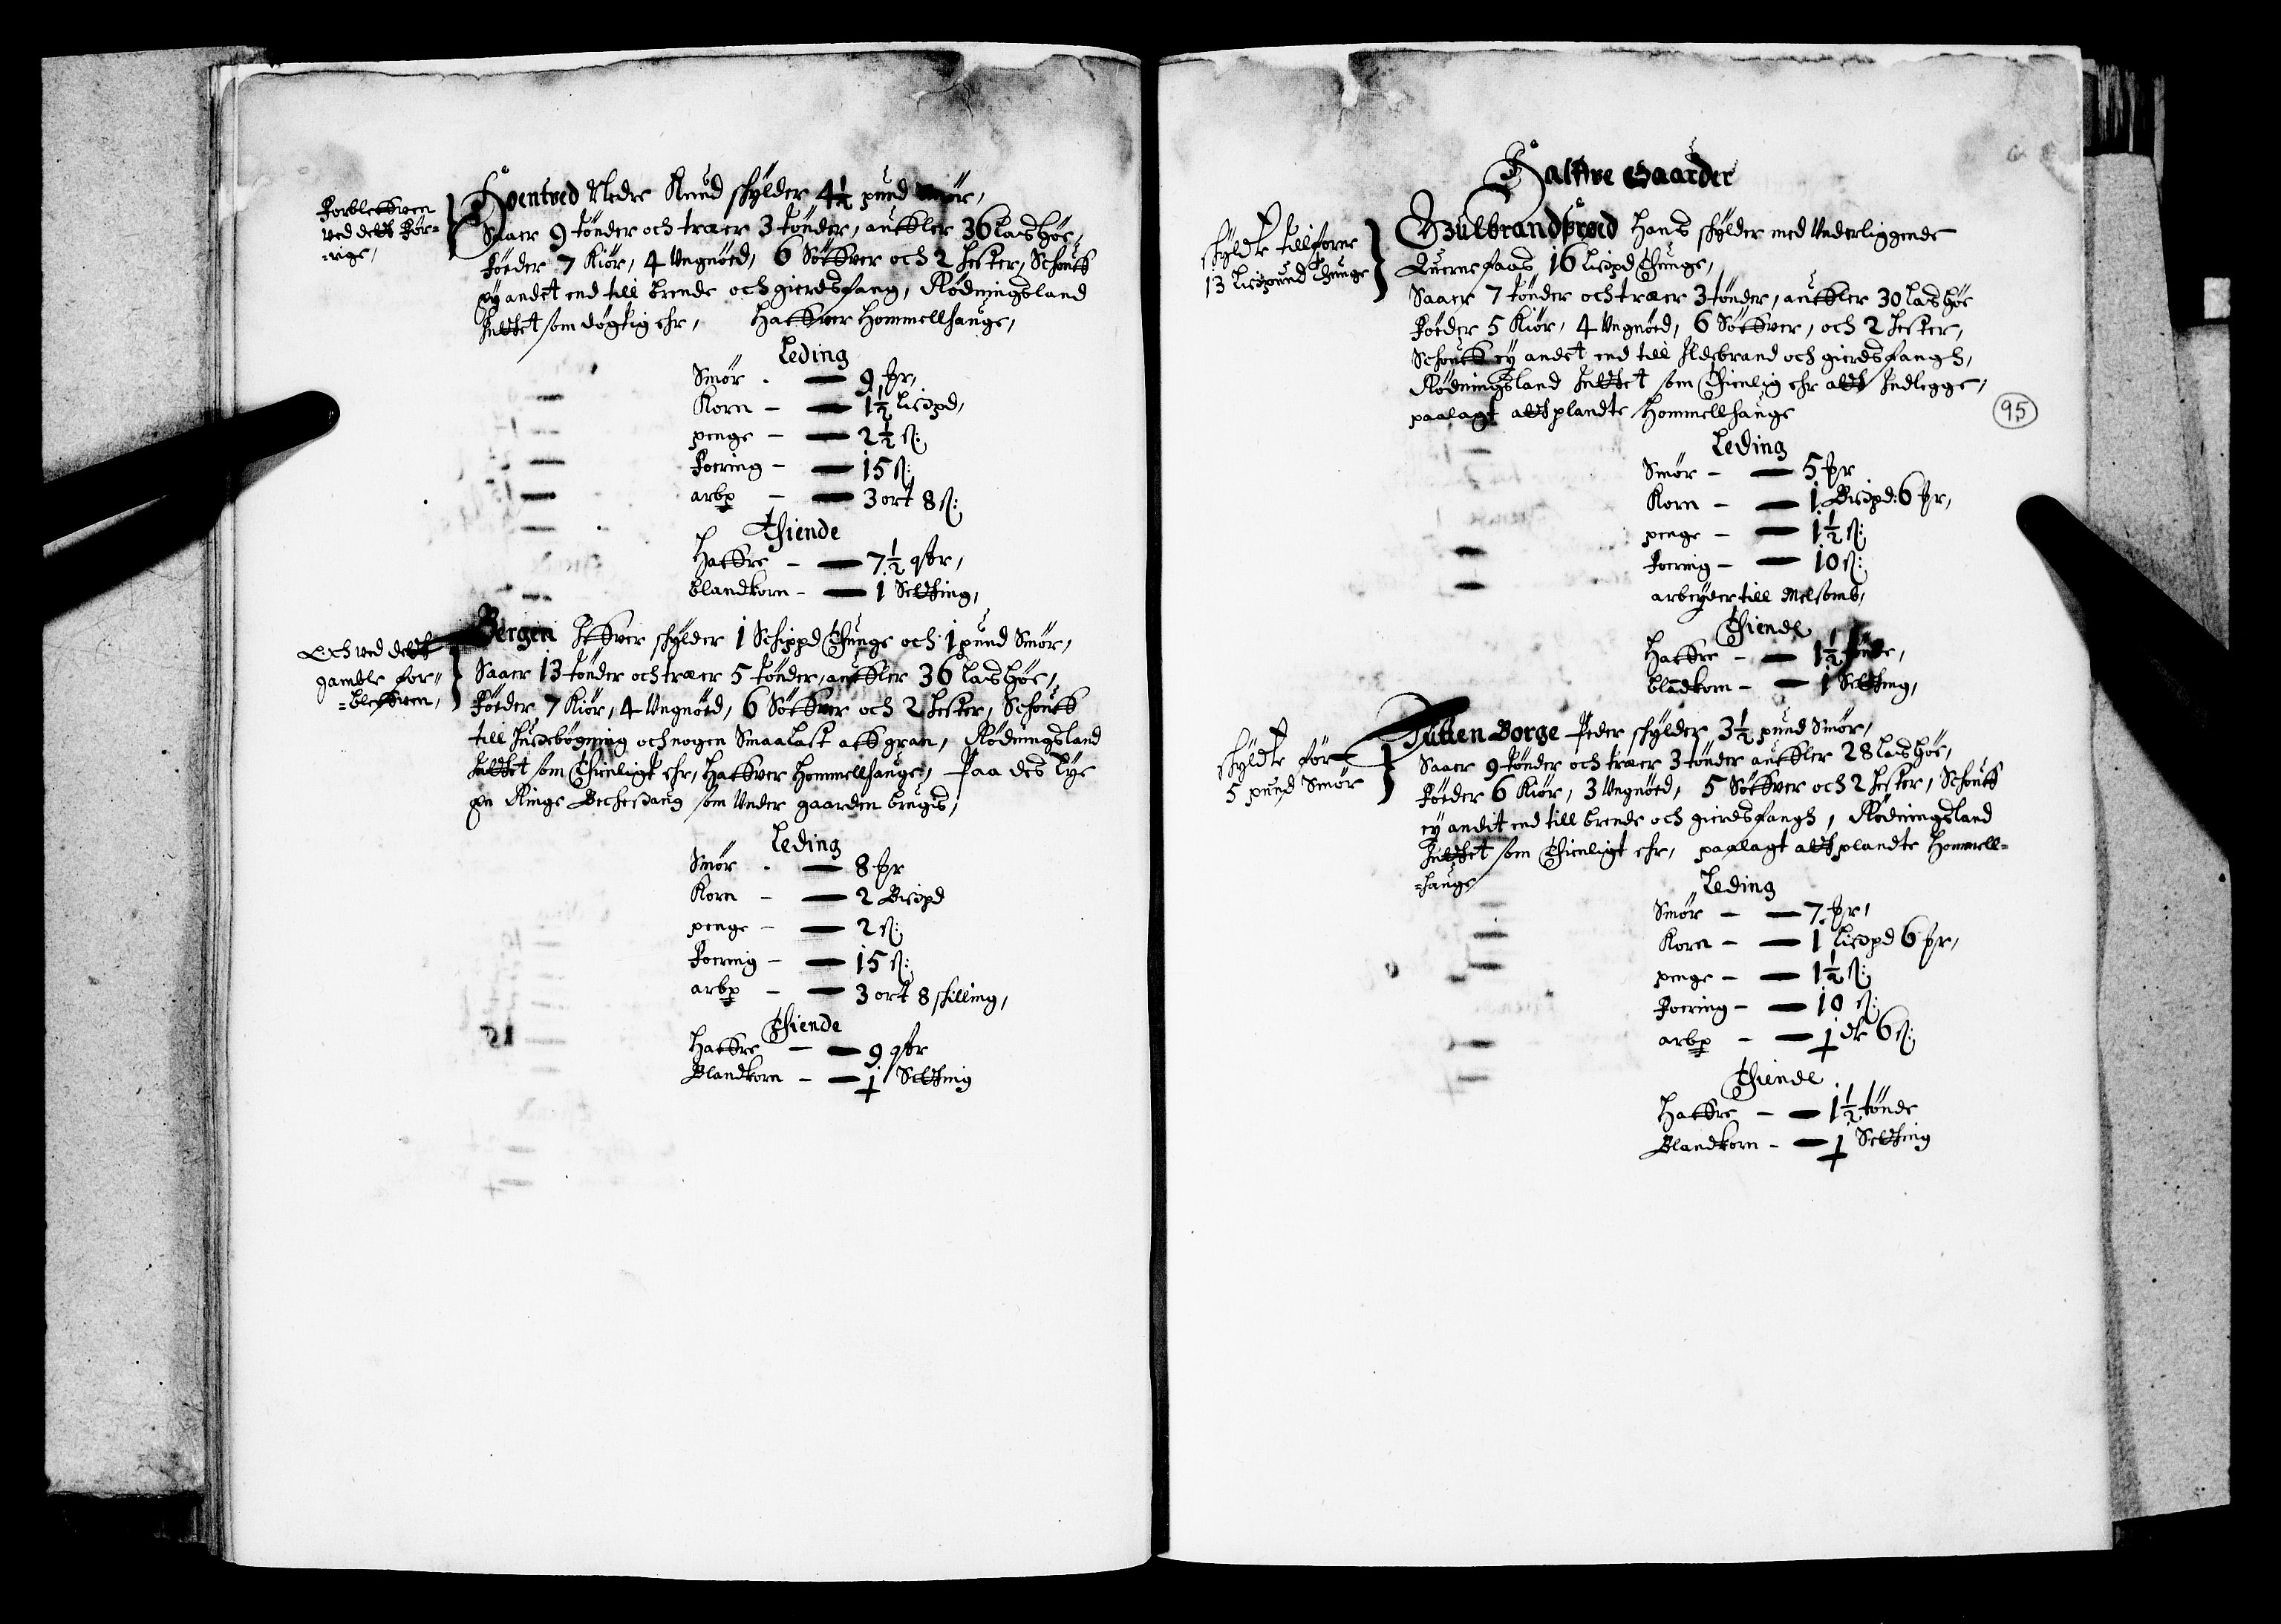 Forbleffven
ved detts för-
-rige,
Hoentved Nedre Knud schÿlder 4½ pund Smör,
Saaer 9 tönder och træer 3 tönder, auffler 36 las höe,
Föeder 7 Kiör, 4 Ungnöed, 6 Söffver och 2 hester, Schouff
eÿ andet end till brende och gierdsfang, Rödningsland
Inttet som døgtig ehr, Haffver Hommellhauge,
Leding
Smör - 9 ßr,
Korn - 1½ lispd,
penge - 2½ s:
Foering - 15 s:
arbp - 3 ort 8 s:
Thiende
Haffre - 7½ qtr,
blandkorn - 1 Setting,
Och ved detts
gamble for-
-bleffven,
Bergen Iffver schÿlder 1 Schippd Thunge och 1 pund Smör,
Saaer 13 tönder och træer 5 tönder, auffler 36 las höe,
Föeder 7 Kiör, 4 Ungnöed, 6 Söffver och 2 hester, Schouff
till Husebögning och nogen Smaalast aff gran, Rödningsland
Inttet som Thienligt ehr, Haffver Hommellhauge, Paa des lÿe
en Ringe Bechesaug som Under gaarden brugis,
Leding
Smör - 8 ßr
Korn - 2 Bispd
penge - 2 s:
Foering - 15 s:
arbp - 3 ort 8 skilling,
Thiende
Haffre - 9 qtr
Blandkorn - 1 Setting
Halfve Gaarder
schÿlte tillforne
13 lispund Thunge
Gulbrandsröed Hans schÿlder med Underliggende
Quernefaas 16 lispd Thunge,
Saaer 7 tönder och træer 3 tönder, auffler 30 las höe
Föeder 5 Kiör, 4 Ungnöed, 6 Söffver, och 2 hester,
Schouff eÿ andet end till Ildebrand och gierdsfangh,
Rödningsland Inttet som Thienlig ehr att Indlegge,
paalagt att plandte Hommellhauge
95
Leding
Smör - 5 ßr
Korn - 1 Bispd: 6 ßr,
penge - 1½ s:
Foering - 10 s:
arbeÿder till Melsomb,
Thiende
Haffre - 1½ tönde,
blandkorn - 1 Setting,
schÿlte för
5 pund Smör
Borge Peder schÿlder 3½ pund Smör,
Saaer 9 tönder och træer 3 tönder auffler 28 las höe,
Föeder 6 Kiör, 3 Ungnöed, 5 Söffver och 2 hester, Schouff
eÿ andit end till brende och gierdsfangh, Rödningsland
Inttet som Thienligt ehr, paalagt att plandte Hommell-
-hauge
Leding
Smör - 7 ßr,
Korn - 1 lispd 6 ßr,
penge - 1½ s:
Foering - 10 s:
arbp - 1 dr 6 s:
Thiende
Haffre - 1½ tönde
Blandkorn - 1 Setting